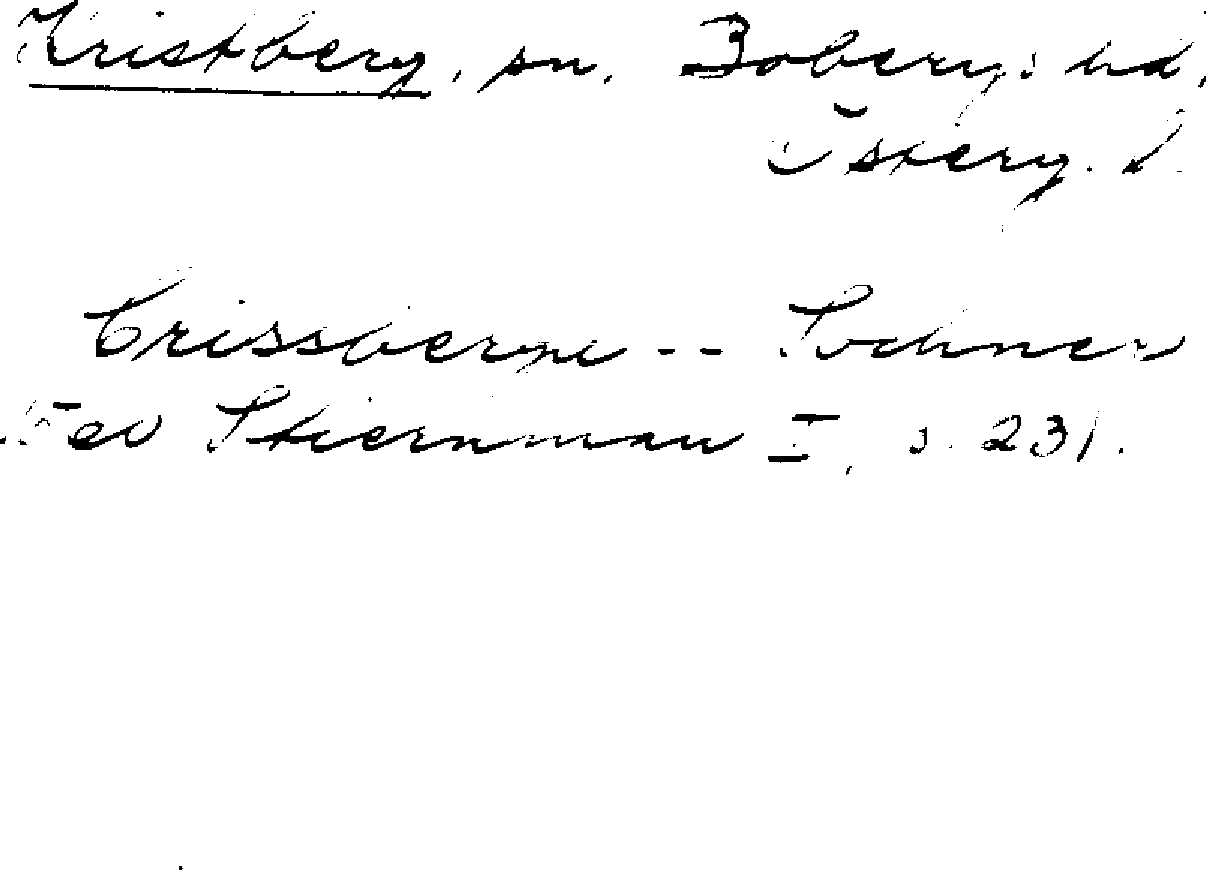 Kristberg, sn. Bobergs hd,
Österg. l.
Crissberge -- Sochnes
Stiernman I, s. 231.